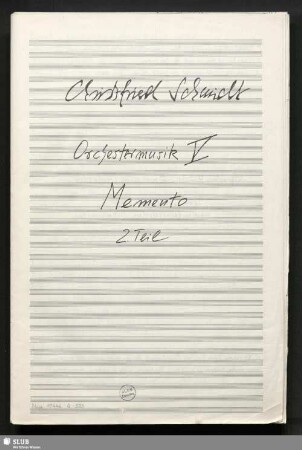 Christfried Schmidt
Orchestermusik V
Memento
2. Teil
SLUB
Wir führen Wissen.